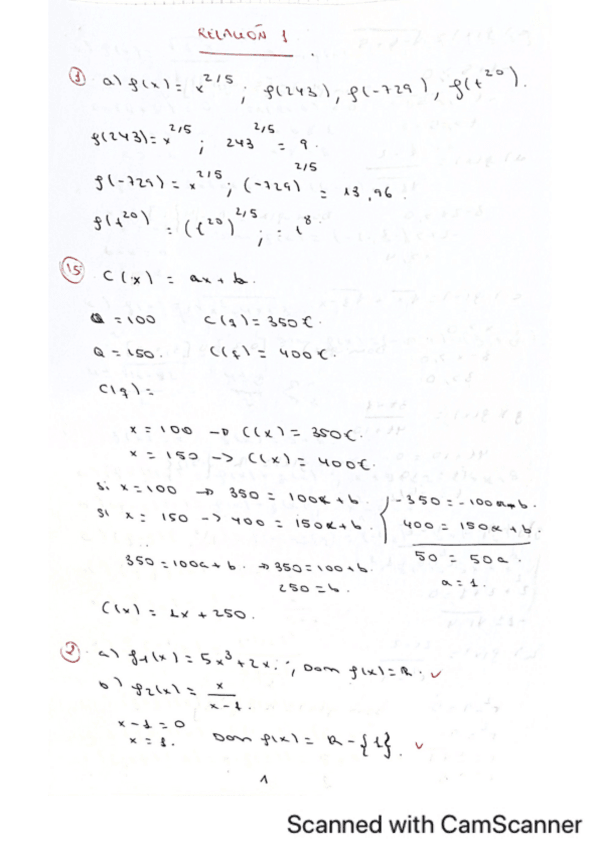 RELACIÓN 1
① a) f(x) = x^2/5 ; f(243), f(-729), f(t^20).
f(243) = x^2/5 ; 243^2/5 = 9.
f(-729) = x^2/5 ; (-729)^2/5 = 13,96.
f(t^20) = (t^20)^2/5 ; = t^8
⑮ C(x) = ax + b.
Q = 100 C(q) = 350€.
Q = 150. C(q) = 400€.
C(q) =
x = 100 → C(x) = 350€.
x = 150 -> C(x) = 400€.
Si x = 100 → 350 = 100a + b. { -350 = -100a - b.
Si x = 150 -> 400 = 150a + b. 400 = 150a + b.
50 = 50a.
350 = 100a + b. → 350 = 100 + b. a = 1.
250 = b.
C(x) = 1x + 250.
② a) f1(x) = 5x^3 + 2x. ; Dom f(x) = R. ✓
b) f2(x) = x / x - 1.
x - 1 = 0
x = 1. Dom f(x) = R - {1}. ✓
1
Scanned with CamScanner